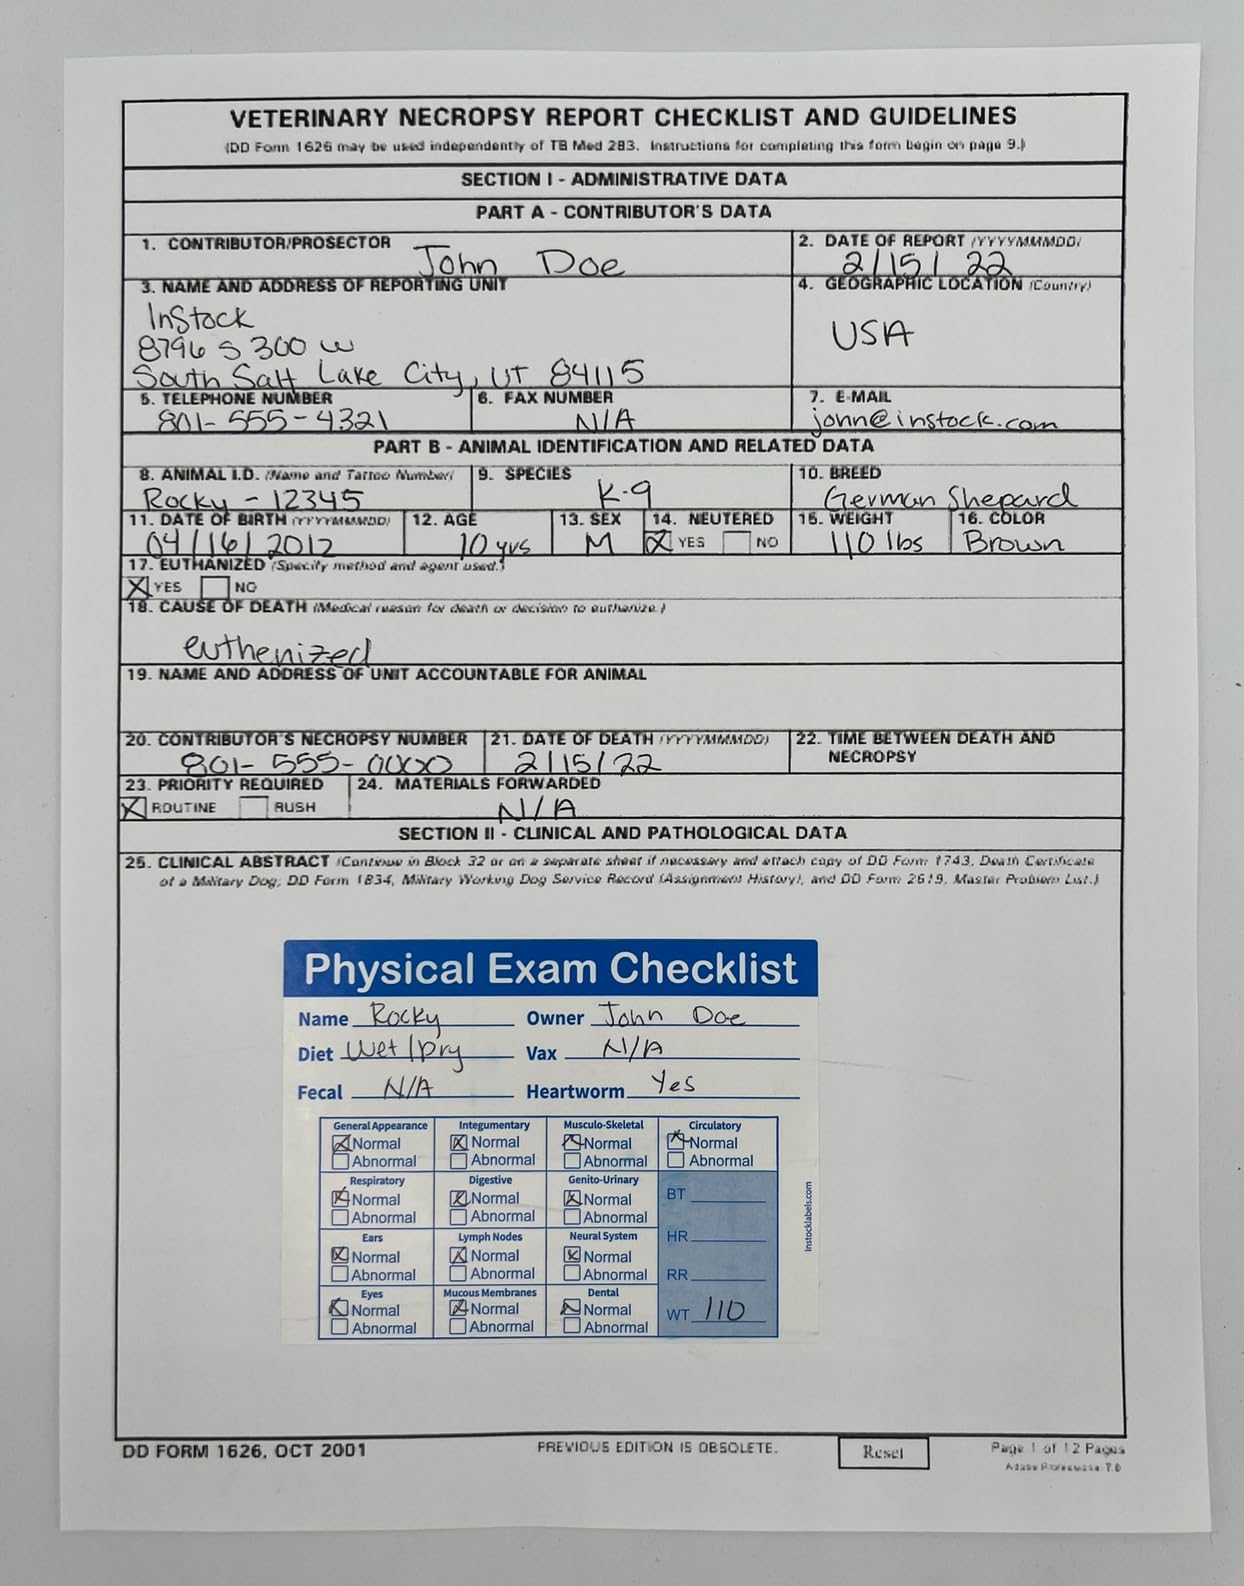 VETERINARY NECROPSY REPORT CHECKLIST AND GUIDELINES
(DD Form 1626 may be used independently of TB Med 283. Instructions for completing this form begin on page 9.)
SECTION I - ADMINISTRATIVE DATA
PART A - CONTRIBUTOR'S DATA
1. CONTRIBUTOR/PROSECTOR
John Doe
2. DATE OF REPORT (YYYYMMMDD)
2/15/22
3. NAME AND ADDRESS OF REPORTING UNIT
InStock
8796 S 300 W
South Salt Lake City, UT 84115
4. GEOGRAPHIC LOCATION (Country)
USA
5. TELEPHONE NUMBER
801-555-4321
6. FAX NUMBER
N/A
7. E-MAIL
john@instock.com
PART B - ANIMAL IDENTIFICATION AND RELATED DATA
8. ANIMAL I.D. (Name and Tattoo Number)
Rocky - 12345
9. SPECIES
K-9
10. BREED
German Shepard
11. DATE OF BIRTH (YYYYMMMDD)
04/16/2012
12. AGE
10 yrs
13. SEX
M
14. NEUTERED
YES NO
15. WEIGHT
110 lbs
16. COLOR
Brown
17. EUTHANIZED (Specify method and agent used.)
YES NO
18. CAUSE OF DEATH (Medical reason for death or decision to euthanize.)
euthenized
19. NAME AND ADDRESS OF UNIT ACCOUNTABLE FOR ANIMAL
20. CONTRIBUTOR'S NECROPSY NUMBER
801-555-0000
21. DATE OF DEATH (YYYYMMMDD)
2/15/22
22. TIME BETWEEN DEATH AND
NECROPSY
23. PRIORITY REQUIRED
ROUTINE RUSH
24. MATERIALS FORWARDED
N/A
SECTION II - CLINICAL AND PATHOLOGICAL DATA
25. CLINICAL ABSTRACT (Continue in Block 32 or on a separate sheet if necessary and attach copy of DD Form 1743, Death Certificate
of a Military Dog; DD Form 1834, Military Working Dog Service Record (Assignment History), and DD Form 2619, Master Problem List.)
Physical Exam Checklist
Name Rocky Owner John Doe
Diet Wet/Dry Vax N/A
Fecal N/A Heartworm Yes
General Appearance Integumentary Musculo-Skeletal Circulatory
Normal Normal Normal Normal
Abnormal Abnormal Abnormal Abnormal
Respiratory Digestive Genito-Urinary
Normal Normal Normal BT
Abnormal Abnormal Abnormal
Ears Lymph Nodes Neural System HR
Normal Normal Normal
Abnormal Abnormal Abnormal RR
Eyes Mucous Membranes Dental
Normal Normal Normal WT 110
Abnormal Abnormal Abnormal
instocklabels.com
DD FORM 1626, OCT 2001
PREVIOUS EDITION IS OBSOLETE.
Reset
Page 1 of 12 Pages
Adobe Professional 7.0